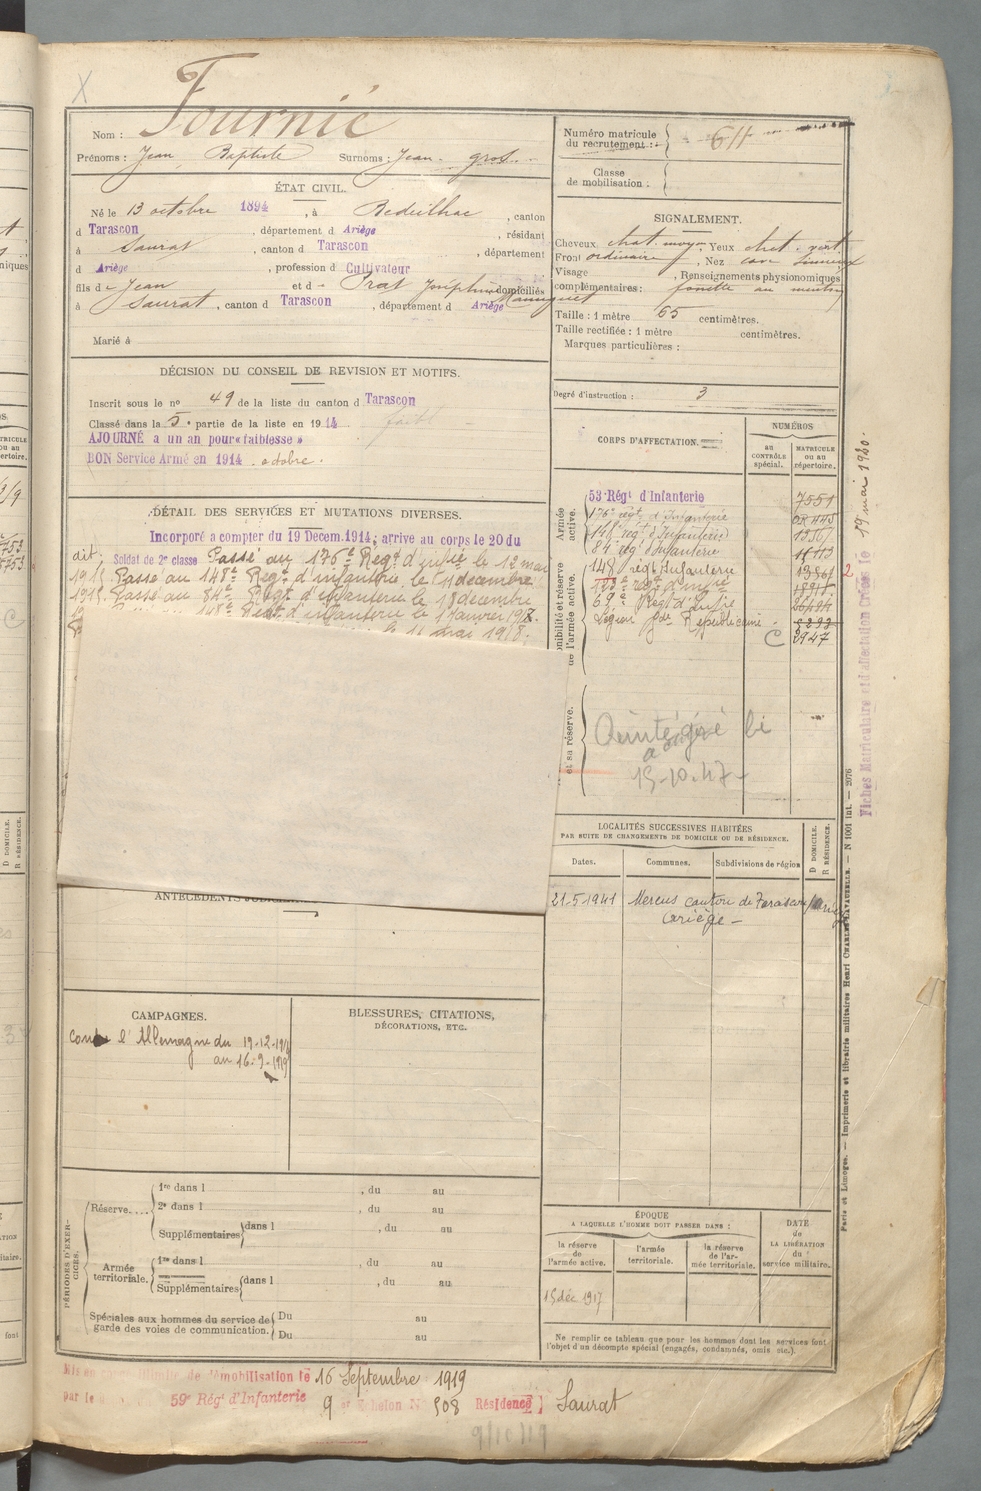 Fournié
Nom :
Prénoms : Jean Baptiste Surnoms : Jean gros
ÉTAT CIVIL.
Né le 13 octobre 1894, à Bedeilhac, canton
d Tarascon, département d Ariège, résidant
à Saurat, canton d Tarascon, département
d Ariège, profession d Cultivateur
fils de Jean et d Prat Joséphine domiciliés
à Saurat, canton d Tarascon, département d Ariège
Marié à
DÉCISION DU CONSEIL DE REVISION ET MOTIFS.
Inscrit sous le no 49 de la liste du canton d Tarascon
Classé dans la 5e partie de la liste en 1914
AJOURNÉ à un an pour « faiblesse »
BON Service Armé en 1914. octobre.
DÉTAIL DES SERVICES ET MUTATIONS DIVERSES.
Incorporé a compter du 19 Décem. 1914; arrive au corps le 20 du
dit; Soldat de 2e classe Passé au 176e Regt d'infie le 1er mai
1915. Passé au 148e Regt d'infanterie le 11 décembre
1915. Passé au 84e Regt d'infanterie le 18 décembre
Regt d'infanterie le 1 Janvier 1917.
le 11 mai 1918.
ANTÉCÉDENTS
CAMPAGNES.
Contre l'Allemagne du 19-12-1914
au 16-9-1919
BLESSURES, CITATIONS,
DÉCORATIONS, ETC.
PÉRIODES D'EXERCICES.
Réserve....
1re dans l , du au
2e dans l , du au
Supplémentaires dans l , du au
Armée
territoriale.
1re dans l , du au
Supplémentaires dans l , du au
Spéciales aux hommes du service de
garde des voies de communication.
Du au
Du au
Numéro matricule
du recrutement : 611
Classe
de mobilisation :
SIGNALEMENT.
Cheveux chat. moyen Yeux chat. vert
Front ordinaire, Nez cave sinueux
Visage , Renseignements physionomiques
complémentaires : fossette au menton
Taille : 1 mètre 65 centimètres.
Taille rectifiée : 1 mètre centimètres.
Marques particulières :
Degré d'instruction : 3
CORPS D'AFFECTATION.
NUMÉROS
AU CONTRÔLE spécial.
MATRICULE ou au répertoire.
Armée active.
53e Régt d'Infanterie 7551
176e régt d'Infanterie
148e régt d'Infanterie
84e régt Infanterie
148 régt Infanterie 13861
Légion Gde Républicaine
C 2947
et sa réserve.
Réintégré
15-10-47
LOCALITÉS SUCCESSIVES HABITÉES
PAR SUITE DE CHANGEMENTS DE DOMICILE OU DE RÉSIDENCE.
Dates. Communes. Subdivisions de région
D DOMICILE.
R RÉSIDENCE.
21-5-1941 Mercus canton de Tarascon
Ariège
ÉPOQUE
A LAQUELLE L'HOMME DOIT PASSER DANS :
la réserve de l'armée active.
l'armée territoriale.
la réserve de l'armée territoriale.
DATE de LA LIBÉRATION du service militaire.
15 déc 1917
Ne remplir ce tableau que pour les hommes dont les services font
l'objet d'un décompte spécial (engagés, condamnés, omis etc.).
Mis en congé illimité de démobilisation le 16 Septembre 1919
par le 59e Régt d'Infanterie 9e Echelon No 508 Résidence Saurat
Fiches Matriculaire et d'affectation Créées le 19 mai 1930.
Paris et Limoges. — Imprimerie et librairie militaires Henri CHARLES-LAVAUZELLE. — N 1001 int. — 2076